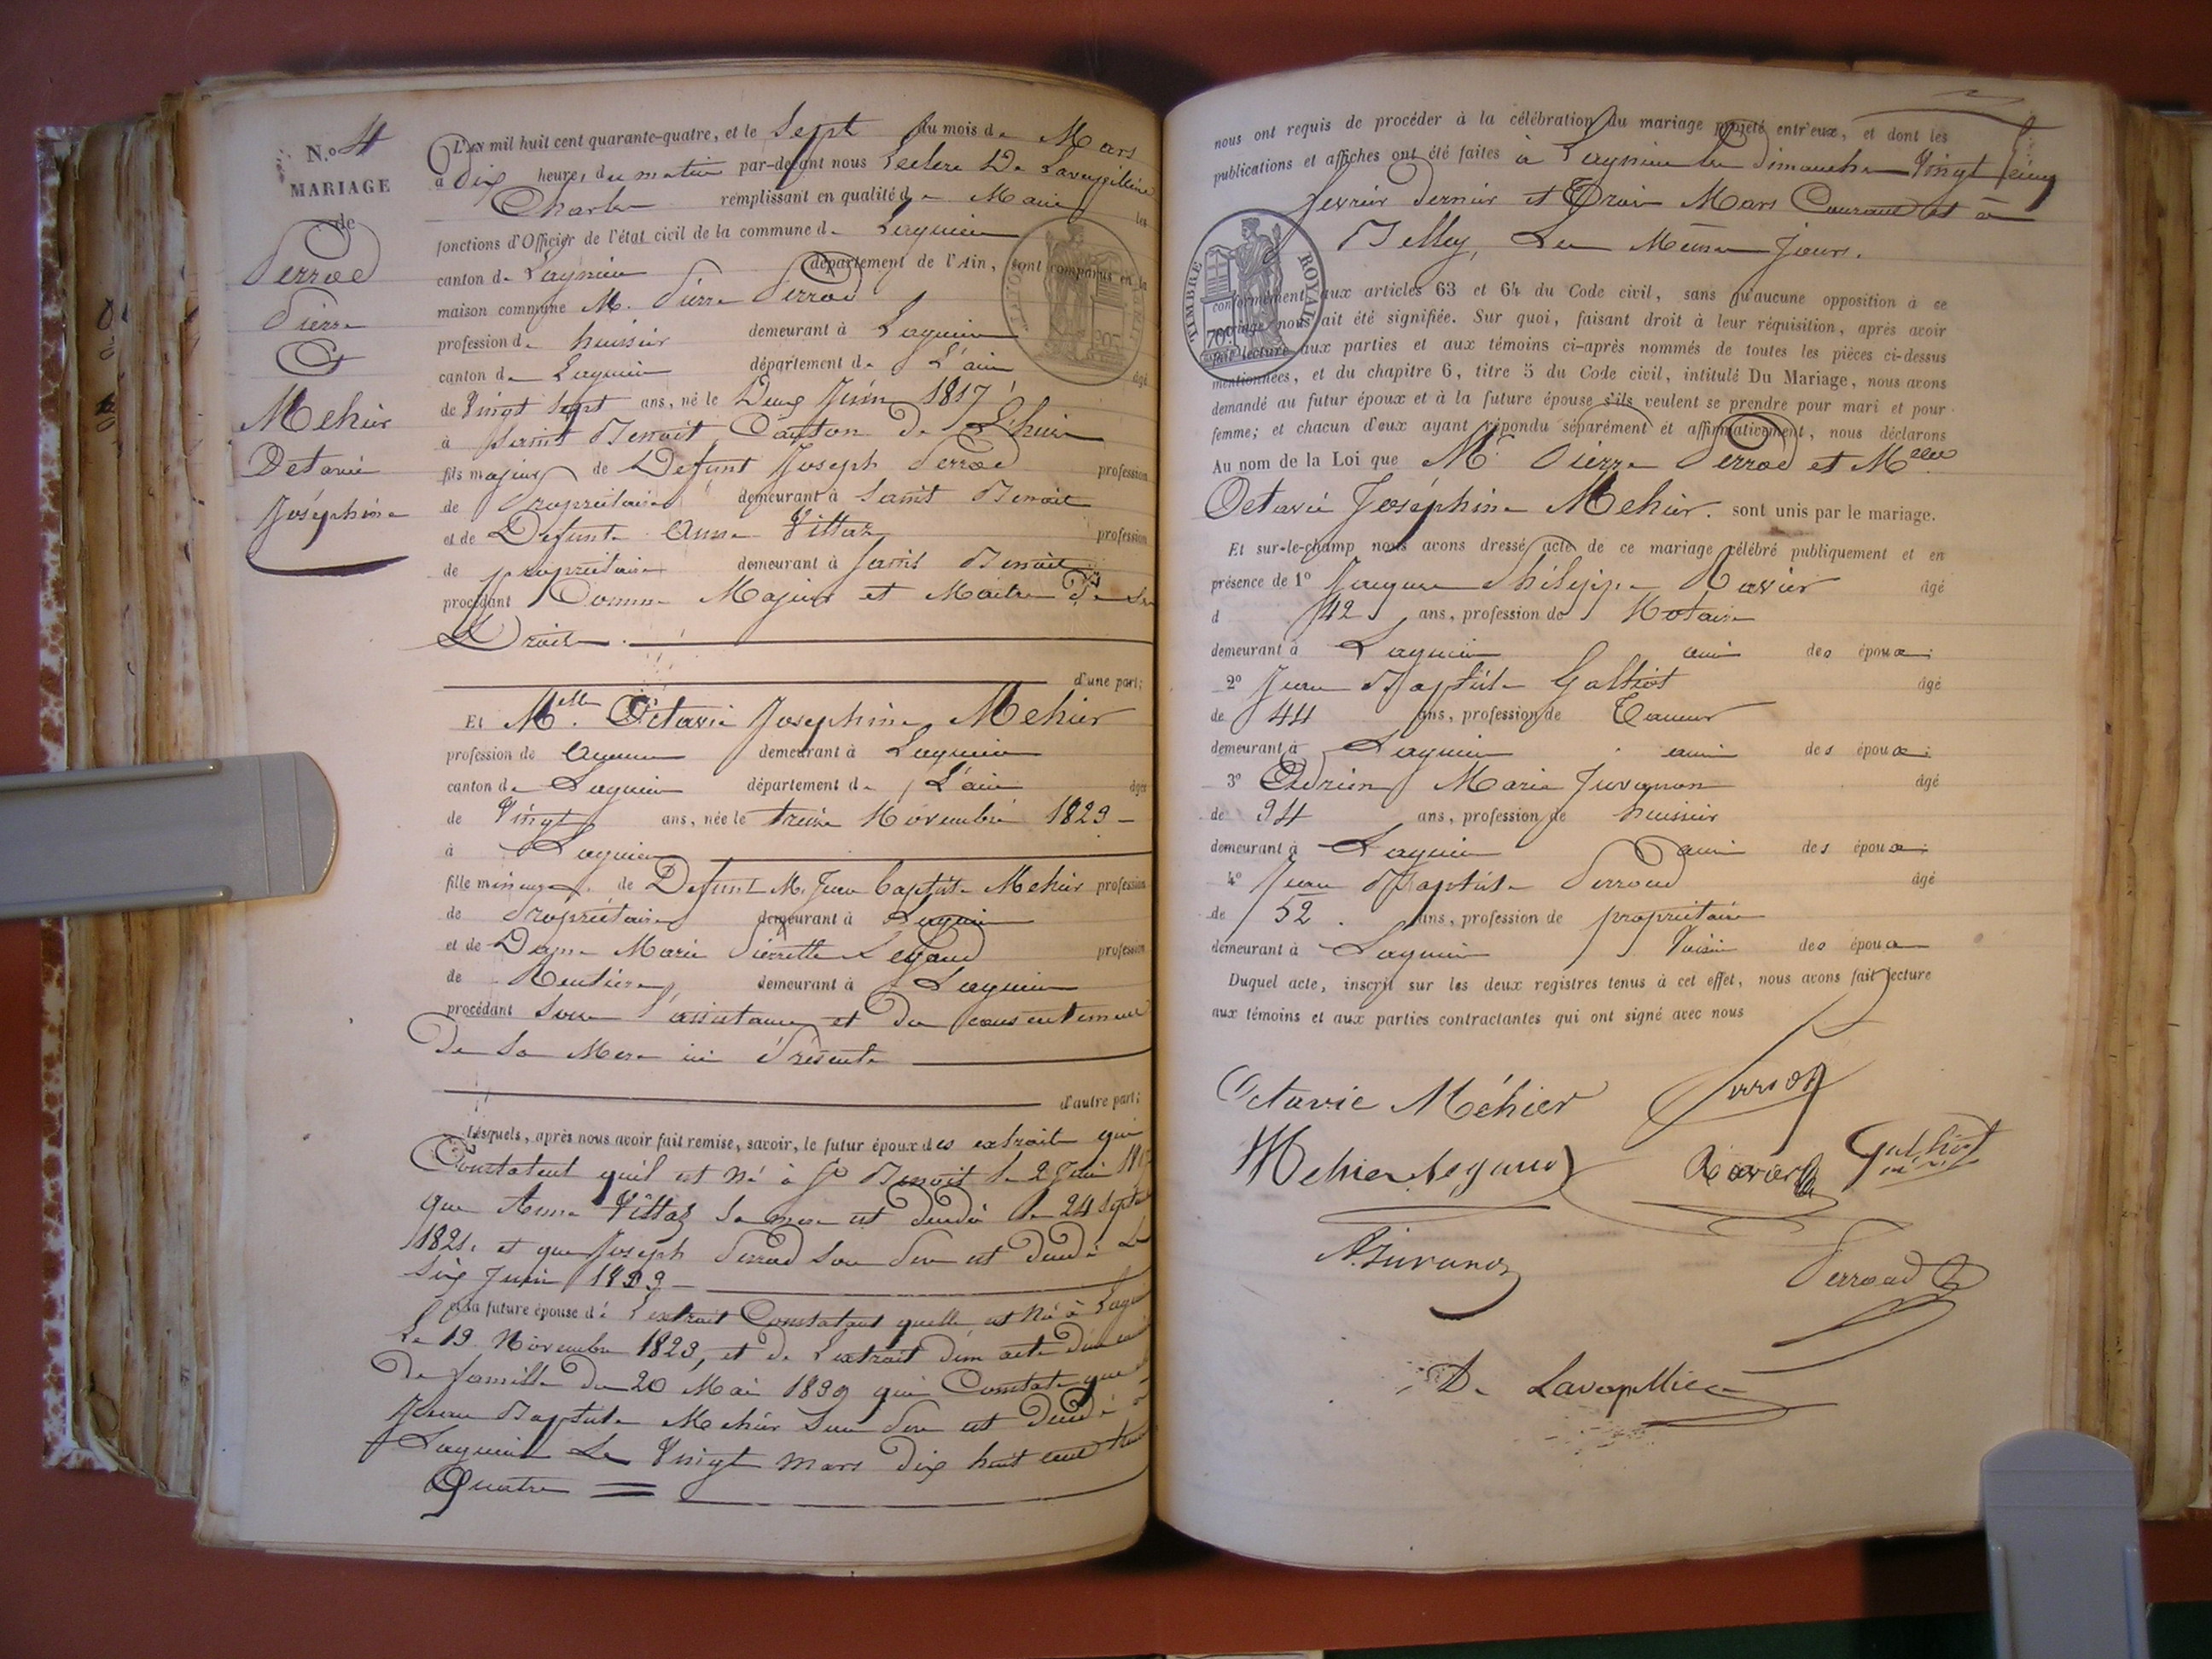 N.o 4
MARIAGE
de
Perrod
Pierre
Et
Mehier
Octavie
Joséphine
L'An mil huit cent quarante-quatre, et le Sept du mois de Mars
à dix heures du matin par-devant nous Leclerc De Lavaupillière
Charles remplissant en qualité de Maire les
fonctions d'Officier de l'état civil de la commune de Lagnieu
canton de Lagnieu département de l'Ain, sont comparus en la
maison commune M. Pierre Perrod
profession de huissier demeurant à Lagnieu
canton de Lagnieu département de L'ain âgé
de Vingt Sept ans, né le Deux Juin 1817
à Saint Benoit Canton de L'huis
fils majeur de Defunt Joseph Perrod profession
de Propriétaire demeurant à Saint Benoit
et de Defunte Anne Vittaz profession
de propriétaire demeurant à Saint Benoit
procédant Comme Majeur et Maitre De Ses
Droits.
d'une part;
Et Melle. Octavie Josephine Mehier
profession de Aucune demeurant à Lagnieu
canton de Lagnieu département de L'ain âgée
de Vingt ans, née le treize Novembre 1823
à Lagnieu
fille mineure de Defunt M. Jean Baptiste Mehier profession
de Propriétaire demeurant à Lagnieu
et de Dame Marie Pierrette Legaud profession
de Rentière demeurant à Lagnieu
procédant Sous l'assistance et du consentement
De Sa Mere ici Présente
d'autre part;
Lesquels, après nous avoir fait remise, savoir, le futur époux des extraits qui
Constatent qu'il est Né à St Benoit le 2 Juin 1817
que Anne Vittaz Sa mere est Décédée le 24 Septe
1821, et que Joseph Perrod Son Pere est Décédé Le
Six Juin
et la future épouse de L'extrait Constatant quelle est Née à Lagnieu
Le 13 Novembre 1823, et de L'extrait d'un acte
De famille du 20 Mai 1839 qui Constate que
Jean Baptiste Mehier Son Pere est Décédé à
Lagnieu Le Vingt Mars Dix huit cent trente
Quatre
nous ont requis de procéder à la célébration du mariage projeté entr'eux, et dont les
publications et affiches ont été faites à Lagnieu les Dimanches Vingt Cinq
fevrier dernier et Trois Mars Courant et à
Belley, Les Mêmes Jours.
TIMBRE ROYALE
70c
conformément aux articles 63 et 64 du Code civil, sans qu'aucune opposition à ce
mariage nous ait été signifiée. Sur quoi, faisant droit à leur réquisition, après avoir
fait lecture aux parties et aux témoins ci-après nommés de toutes les pièces ci-dessus
mentionnées, et du chapitre 6, titre 5 du Code civil, intitulé Du Mariage, nous avons
demandé au futur époux et à la future épouse s'ils veulent se prendre pour mari et pour
femme; et chacun d'eux ayant répondu séparément et affirmativement, nous déclarons
Au nom de la Loi que Mr. Pierre Perrod et Melle
Octavie Joséphine Mehier. sont unis par le mariage.
Et sur-le-champ nous avons dressé acte de ce mariage célébré publiquement et en
présence de 1o Jacques Philippe Ravier âgé
d 42 ans, profession de Notaire
demeurant à Lagnieu ami des époux.
2o Jean Baptiste Galliot âgé
de 44 ans, profession de Tanneur
demeurant à Lagnieu ami des époux.
3o Adrien Marie Juvanon âgé
de 34 ans, profession de huissier
demeurant à Lagnieu ami des époux.
4o Jean Baptiste Perroud âgé
de 52 ans, profession de propriétaire
demeurant à Lagnieu Voisin des époux
Duquel acte, inscrit sur les deux registres tenus à cet effet, nous avons fait lecture
aux témoins et aux parties contractantes qui ont signé avec nous
Octavie Méhier Perrod
Mehier Legaud Ravier
A. Juvanon Perroud
De Lavaupillière